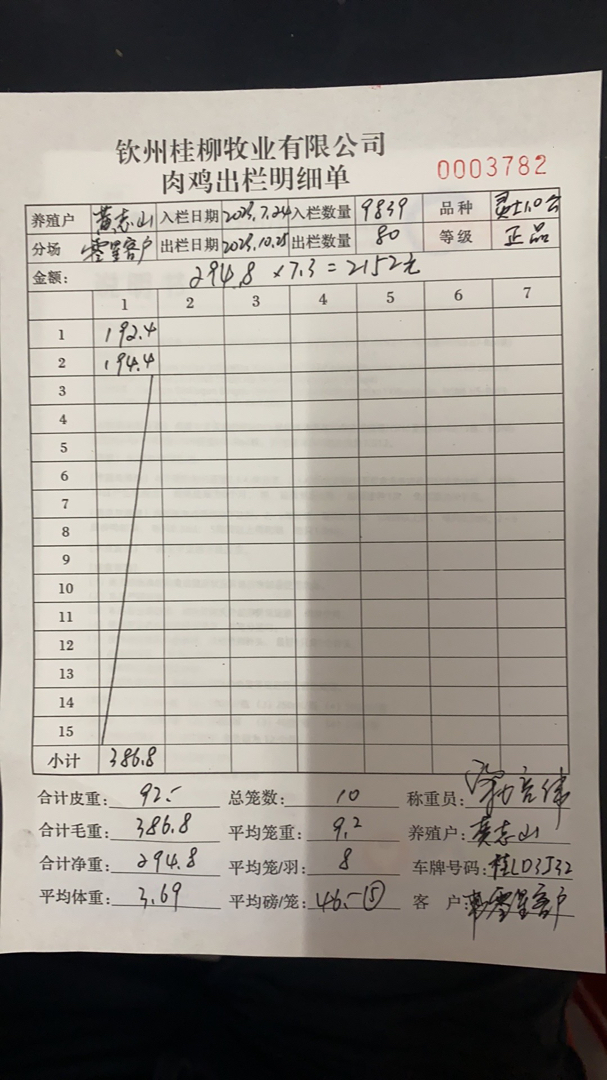 钦州桂柳牧业有限公司
肉鸡出栏明细单 0003782
养殖户 黄志山 入栏日期 2023.7.24 入栏数量 9839 品种
分场 零星客户 出栏日期 2023.10.25 出栏数量 80 等级 正品
金额: 294.8 × 7.3 = 2152元
1 2 3 4 5 6 7
1 192.4
2 194.4
3
4
5
6
7
8
9
10
11
12
13
14
15
小计 386.8
合计皮重: 92.- 总笼数: 10 称重员:
合计毛重: 386.8 平均笼重: 9.2 养殖户: 黄志山
合计净重: 294.8 平均笼/羽: 8 车牌号码: 桂LD3J32
平均体重: 3.69 平均磅/笼: 46.-⑤ 客 户: 零星客户